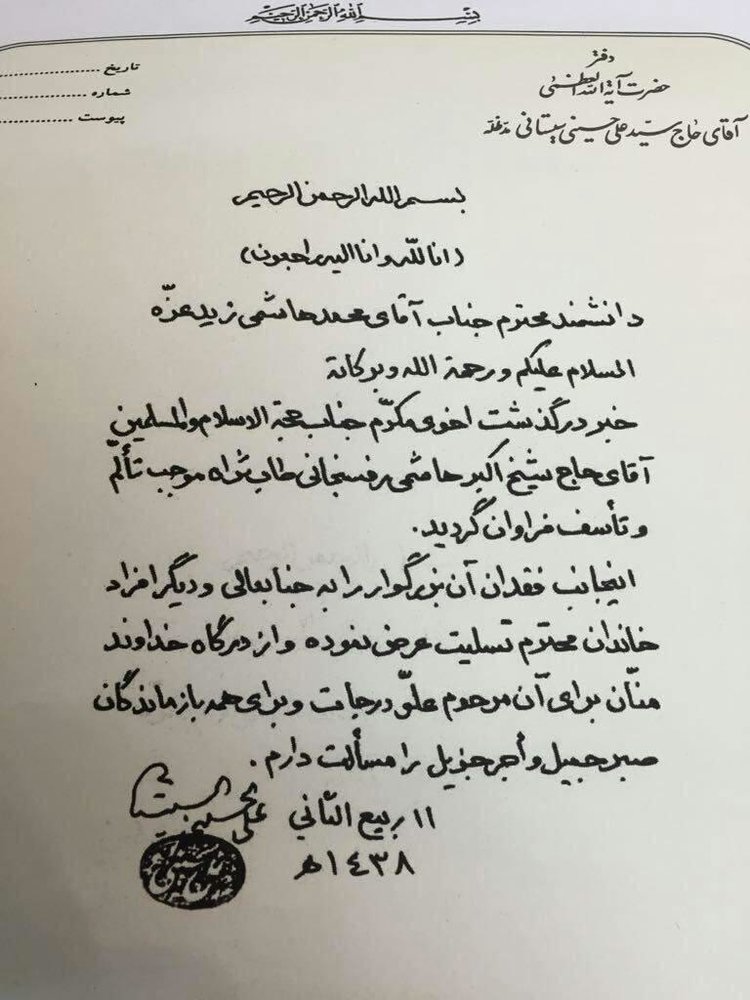 بسم الله الرحمن الرحیم
دفتر
حضرت آیة الله العظمی
آقای حاج سید علی حسینی سیستانی مدظله
تاریخ ....................
شماره ....................
پیوست ....................
بسم الله الرحمن الرحیم
(انا لله و انا الیه راجعون)
دانشمند محترم جناب آقای محمد هاشمی زید عزّه
السلام علیکم ورحمة الله وبرکاته
خبر درگذشت اخوی مکرّم جناب حجة الاسلام والمسلمین
آقای حاج شیخ اکبر هاشمی رفسنجانی طاب ثراه موجب تألّم
و تأسف فراوان گردید.
اینجانب فقدان آن بزرگوار را به جنابعالی و دیگر افراد
خاندان محترم تسلیت عرض نموده و از درگاه خداوند
منّان برای آن مرحوم علوّ درجات و برای همه بازماندگان
صبر جمیل و أجر جزیل را مسألت دارم.
١١ ربیع الثّاني
علی الحسینی السیستانی
١٤٣٨هـ